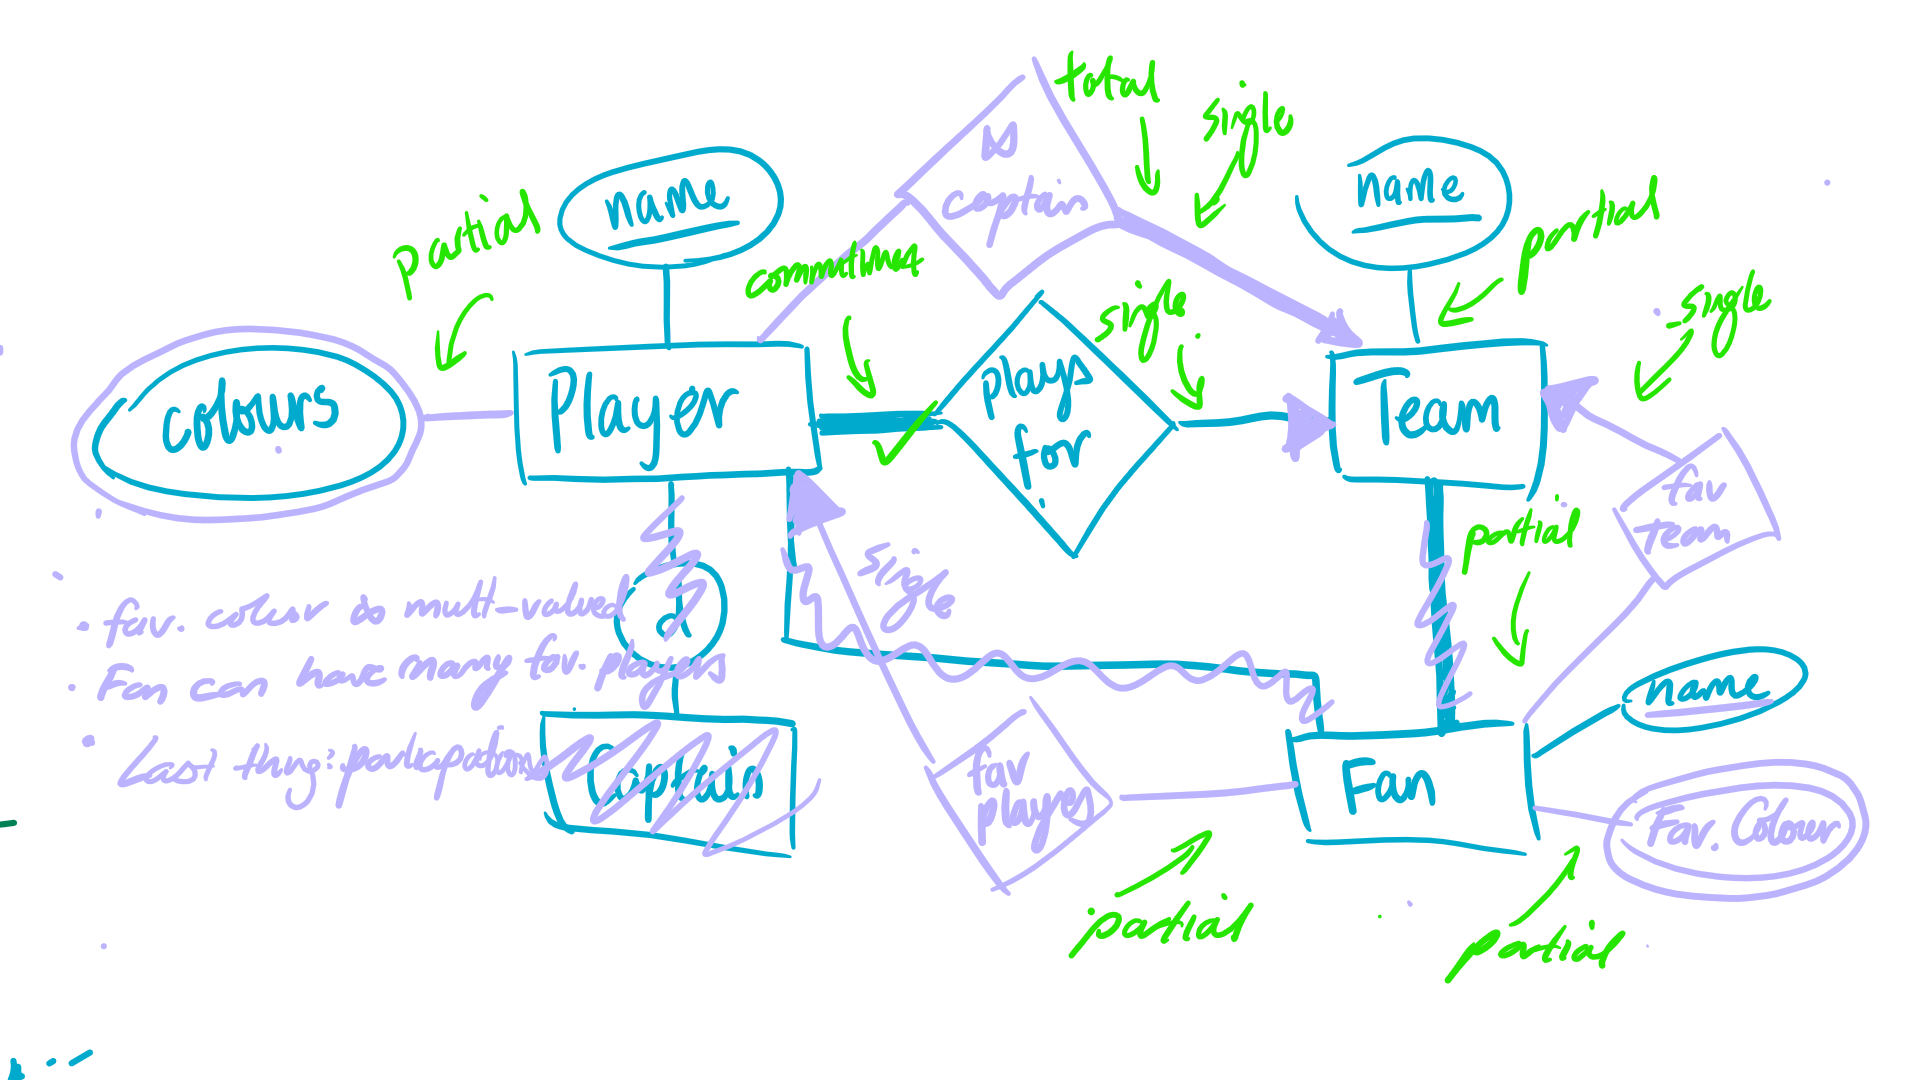 total
single
is
captain
name
name
partial
partial
single
single
colours
Player
plays
for
Team
fav
Team
partial
single
2
• fav. colour is mult-valued
• Fan can have many fav. players
name
• Last thing: participations
Captain
fav
players
Fan
Fav. Colour
partial
partial